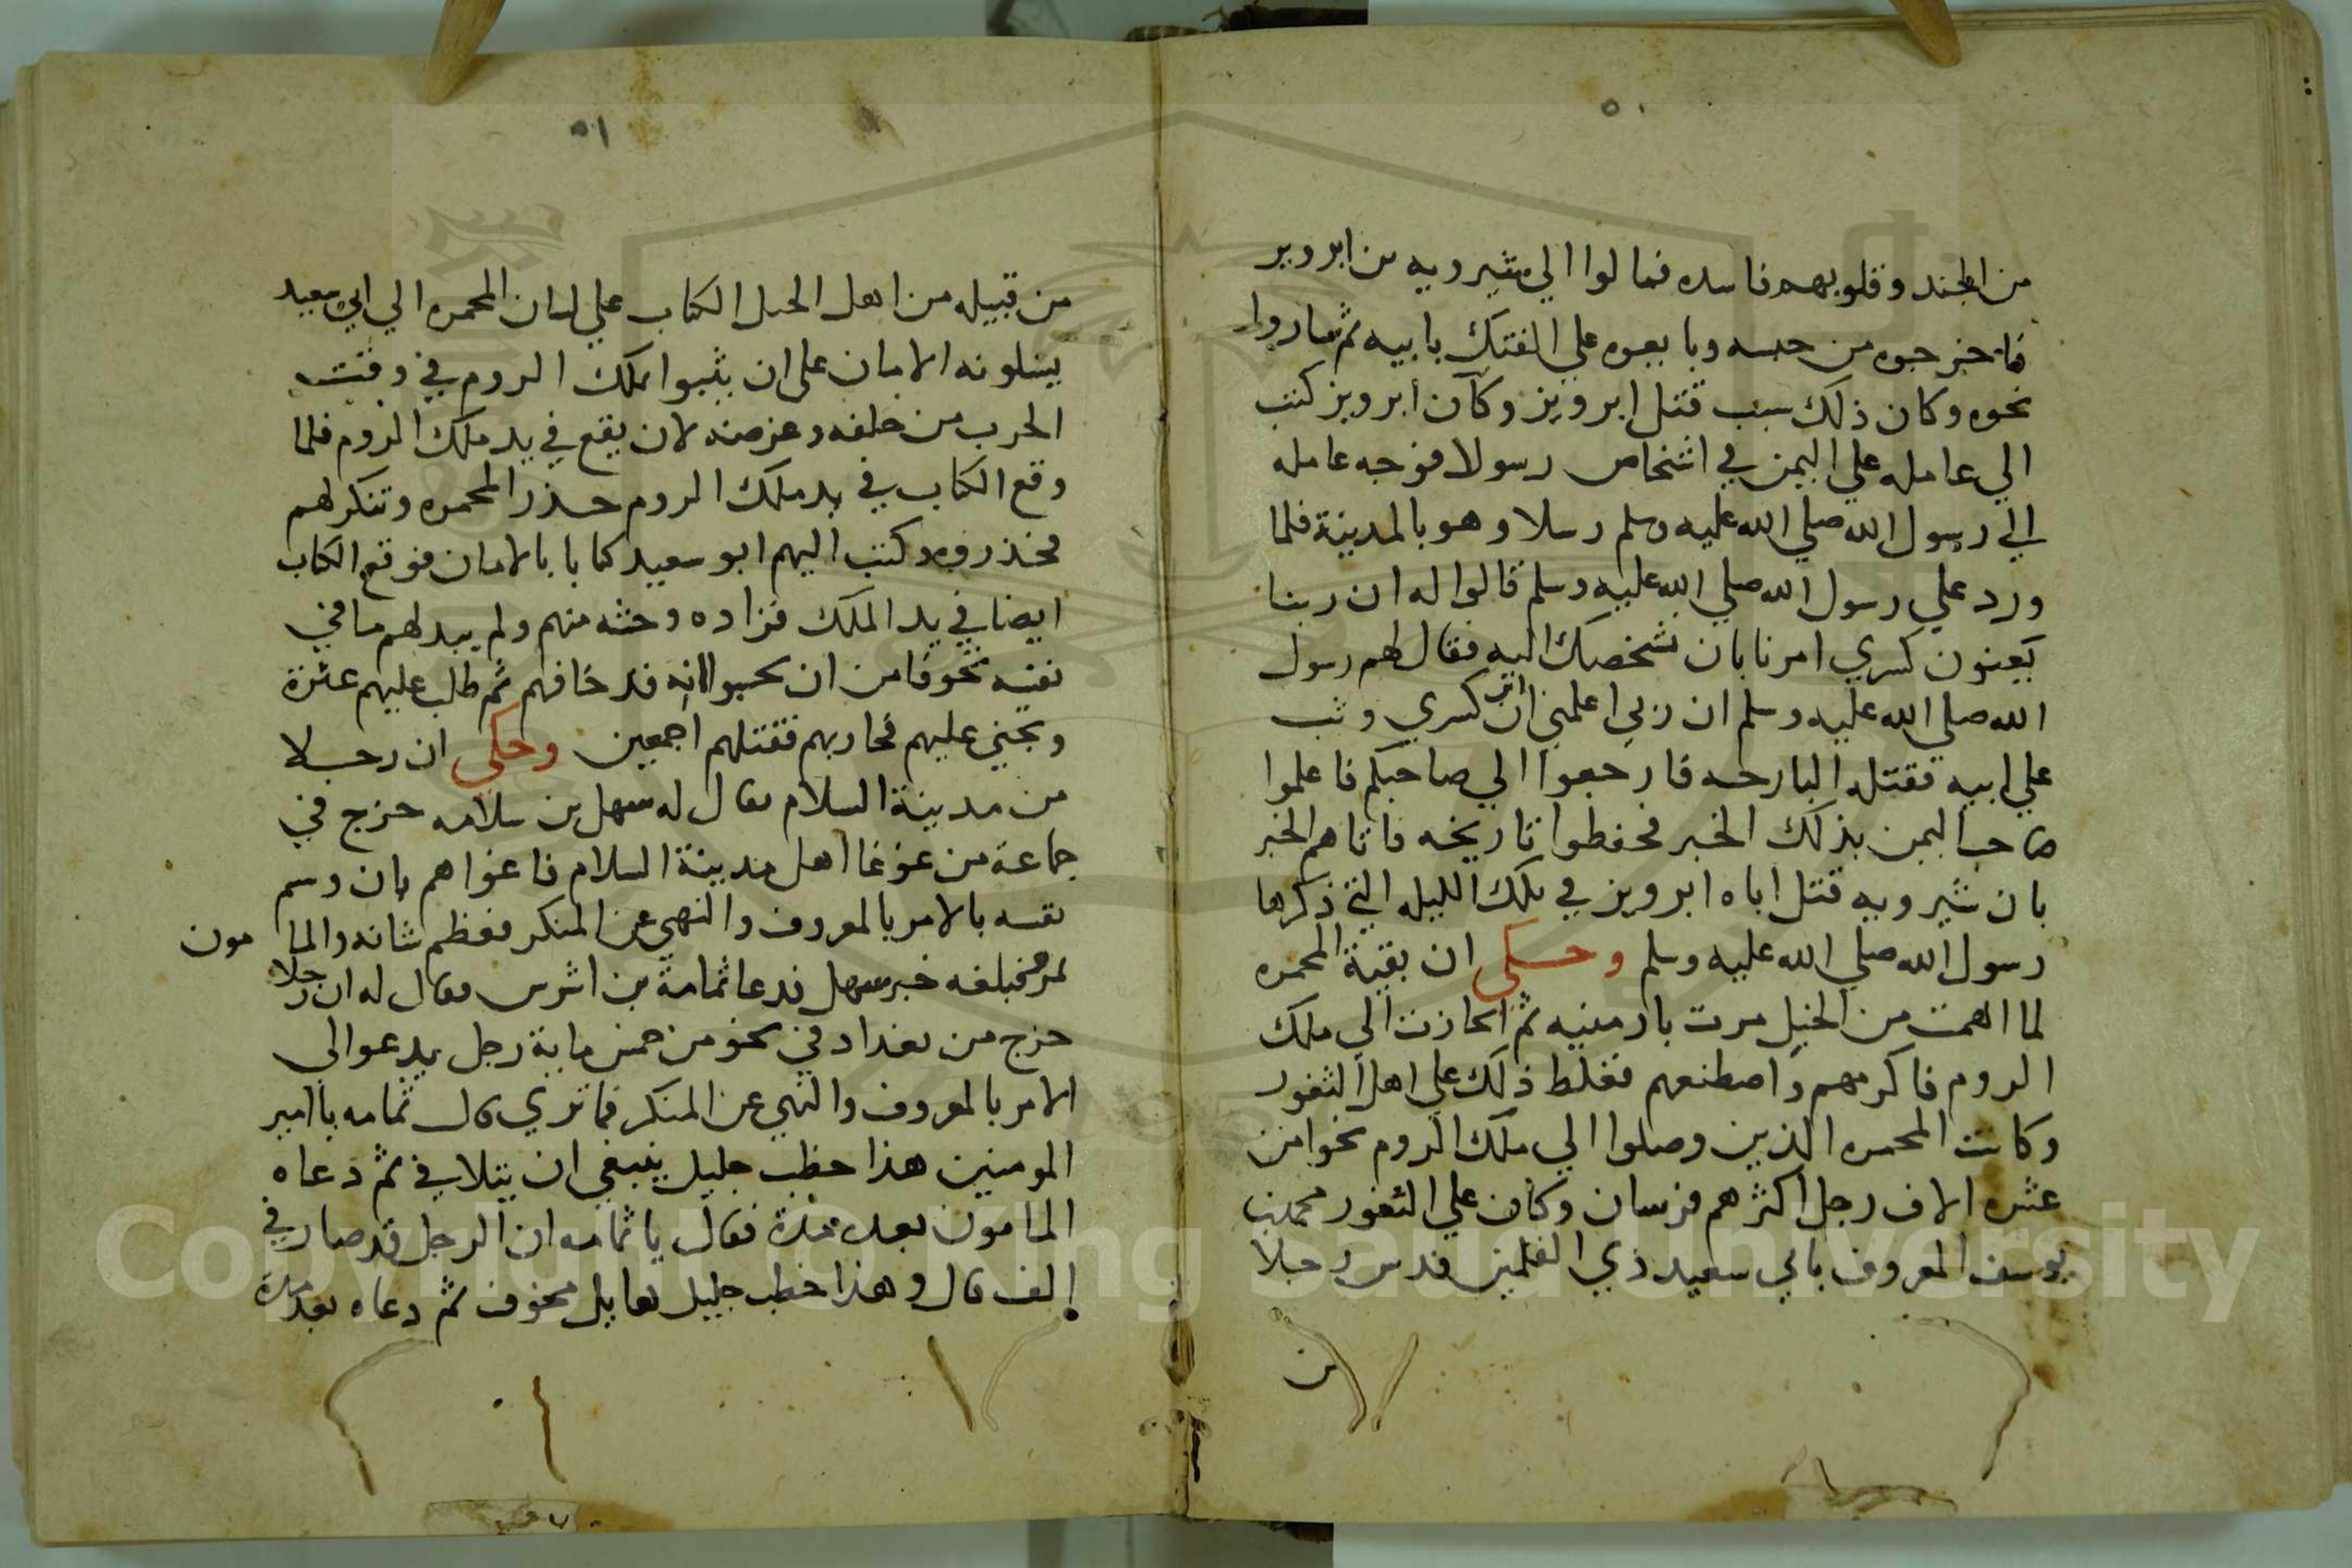 ٥٠
من الجند وقلوبهم فاسده فمالوا الي شيرويه بن ابرويز
فاخرجوه من حبسه وبايعوه علي الفتك بابيه ثم صاروا
نحوه وكان ذلك سبب قتل ابرويز وكان ابرويز كتب
الي عامله علي اليمن في اشخاص رسولا فوجه عامله
الي رسول الله صلي الله عليه وسلم رسلا وهو بالمدينة فلما
ورد علي رسول الله صلي الله عليه وسلم قالوا له ان ربنا
يعنون كسري امرنا بان نشخصك اليه فقال لهم رسول
الله صلي الله عليه وسلم ان ربي اعلمني ان ابن كسري وثب
علي ابيه فقتله البارحه فارجعوا الي صاحبكم فاعلموا
صاحب اليمن بذلك الخبر فحفظوا تاريخه فاتاهم الخبر
بان شيرويه قتل اباه ابرويز في تلك الليله التي ذكرها
رسول الله صلي الله عليه وسلم وحكي ان بقية المحمره
لما انهمت من الجبل مرت بارمنيه ثم انحازت الي ملك
الروم فاكرمهم واصطنعهم فغلظ ذلك علي اهل الثغور
وكانت المحمره الذين وصلوا الي ملك الروم نحوا من
عشره الاف رجل اكثرهم فرسان وكان علي الثغور محمد بن
يوسف المعروف بابي سعيد ذي القلمين فدس رجلا
من
٥١
من قبيله من اهل الجبل الكتاب علي لسان المحمره الي ابي سعيد
يسلونه الامان علي ان يثبوا بملك الروم في وقت
الحرب من خلفه وغرضه لان يقع في يد ملك الروم فلما
وقع الكتاب في يد ملك الروم حذر المحمره وتنكر لهم
فحذروه وكتب اليهم ابو سعيد كتابا بالامان فوقع الكتاب
ايضا في يد الملك فزاده وحشه منهم ولم يبد لهم ما في
نفسه تخوفا من ان يحسبوا انه قد خافهم ثم طلب عليهم عثرة
وتجني عليهم فحاربهم فقتلهم اجمعين وحكي ان رجلا
من مدينة السلام يقال له سهل بن سلامه خرج في
جماعة من غوغا اهل مدينة السلام فاغواهم بان وسم
نفسه بالامر بالمعروف والنهي عن المنكر فعظم شانه والمامون
بمرو فبلغه خبر سهل فدعا ثمامة بن اشرس فقال له ان رجلا
خرج من بغداد في نحو من خمس ماية رجل يدعو الي
الامر بالمعروف والنهي عن المنكر فما تري قال ثمامه يا امير
المومنين هذا خطب جليل ينبغي ان يتلافي ثم دعاه
المامون بعد مدة فقال يا ثمامه ان الرجل قد صار في
الف قال وهذا خطب جليل هايل مخوف ثم دعاه بعد مدة
Copyright © King Saud University